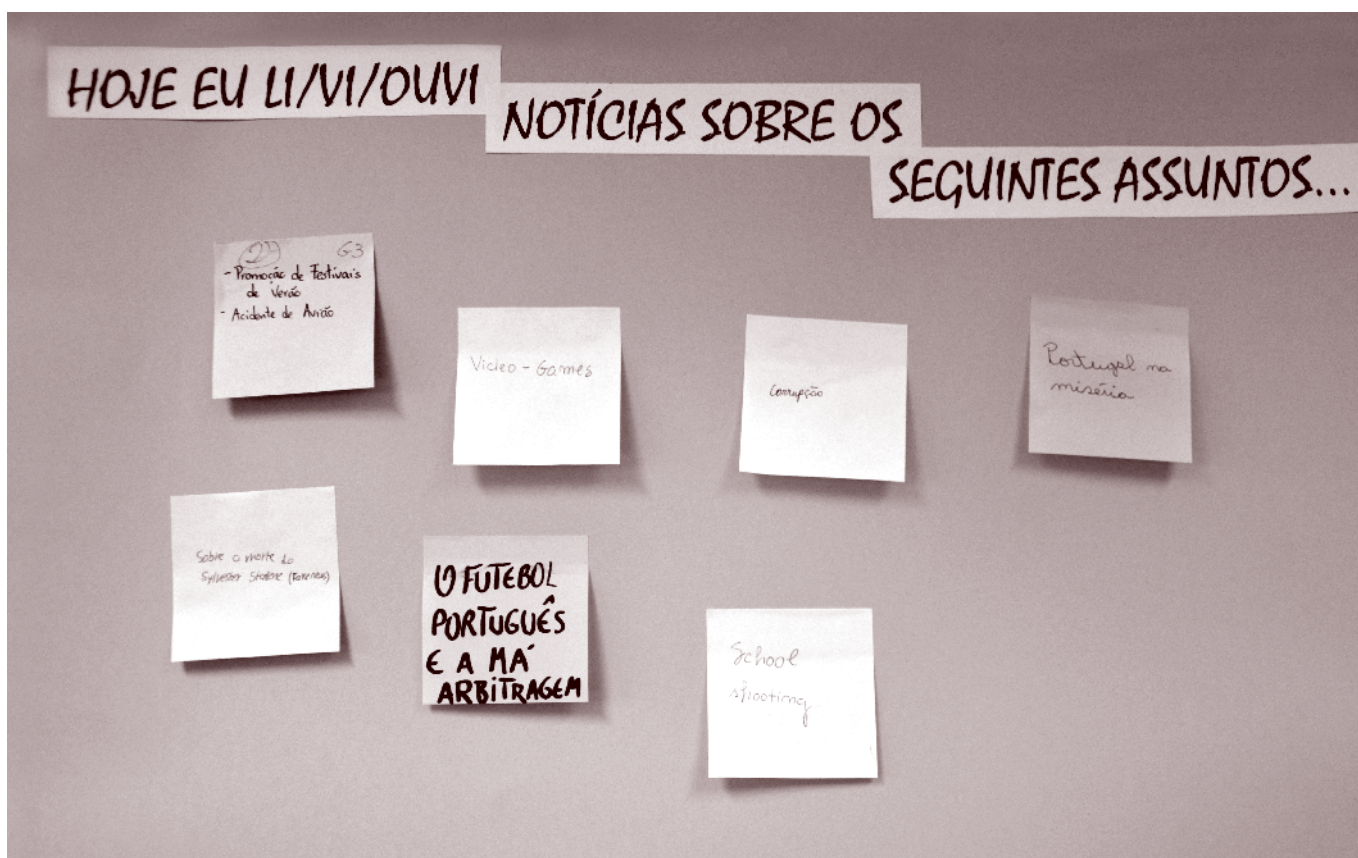 HOJE EU LI/VI/OUVI
NOTÍCIAS SOBRE OS
SEGUINTES ASSUNTOS...
G3
- Promoção de Festivais
de Verão
- Acidente de Avião
Video - Games
Corrupção
Portugal na
miséria
Sobre a morte do
Sylvester
O FUTEBOL
PORTUGUÊS
E A MÁ
ARBITRAGEM
School
shooting